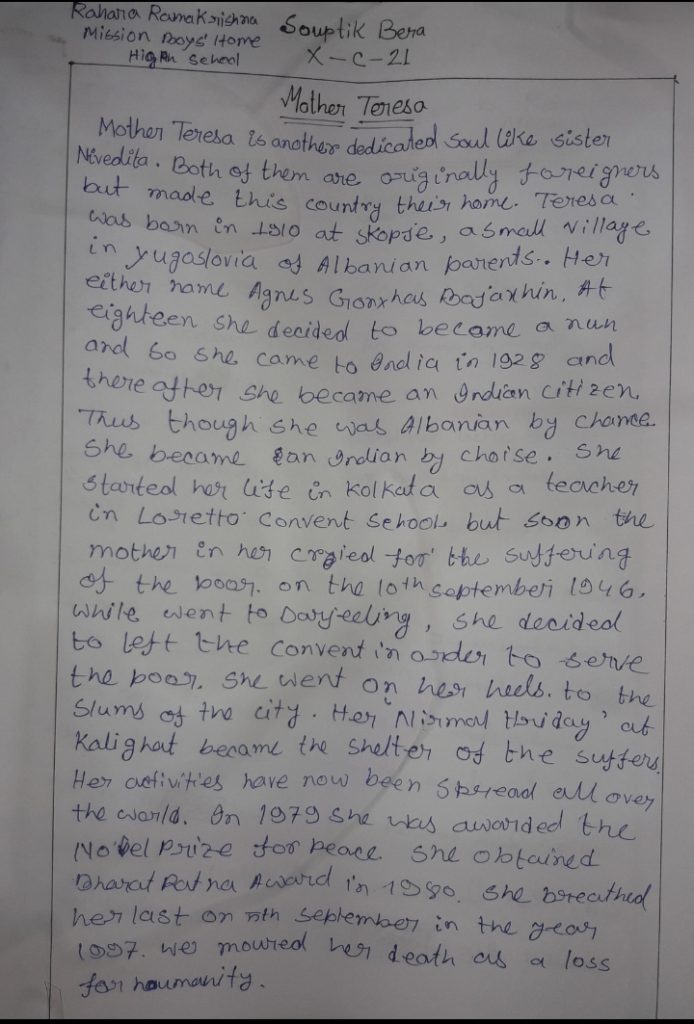 Rahara Ramakrishna
Mission Boys' Home
High School
Souptik Bera
X-C-21
Mother Teresa
Mother Teresa is another dedicated soul like sister
Nivedita. Both of them are originally foreigners
but made this country their home. Teresa
was born in 1910 at skopje, a small village
in yugoslovia of Albanian parents.. Her
either name Agnes Gonxhas Bojaxhin. At
eighteen she decided to become a nun
and so she came to India in 1928 and
there after she became an Indian citizen.
Thus though she was Albanian by chance
She became an Indian by choise. She
started her life in Kolkata as a teacher
in Loretto Convent School but soon the
mother in her cried for the suffering
of the poor. on the 10th september 1946.
while went to Darjeeling, she decided
to left the convent in order to serve
the poor. she went on her heels. to the
slums of the city. Her "Nirmal Hriday' at
Kalighat became the shelter of the suffers.
Her activities have now been spread all over
the world. In 1979 she was awarded the
Nobel Prize for peace. she obtained
Bharat Ratna Award in 1980. she breathed
her last on 5th september in the year
1997. we moured her death as a loss
for houmanity.